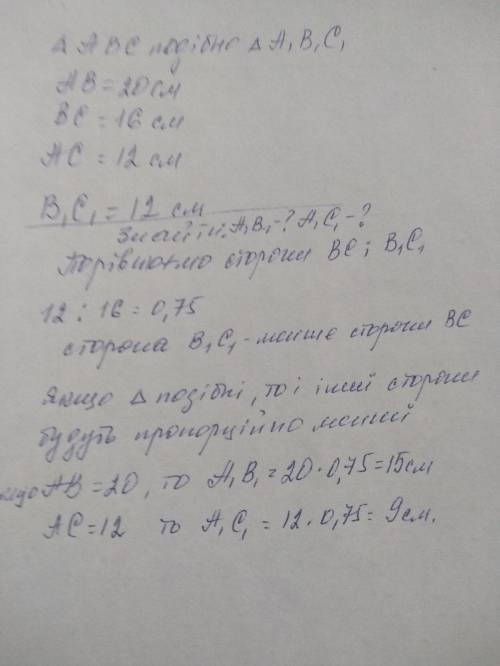 Δ ABC подібно Δ A₁B₁C₁
AB = 20 см
BC = 16 см
AC = 12 см
B₁C₁ = 12 см
Знайти: A₁B₁-? A₁C₁-?
Порівняємо сторони BC і B₁C₁
12 : 16 = 0,75
сторона B₁C₁ - менше сторони BC
якщо Δ подібні, то і інші сторони
будуть пропорційно менші
якщо AB = 20, то A₁B₁ = 20 · 0,75 = 15 см
AC = 12 то A₁C₁ = 12 · 0,75 = 9 см.